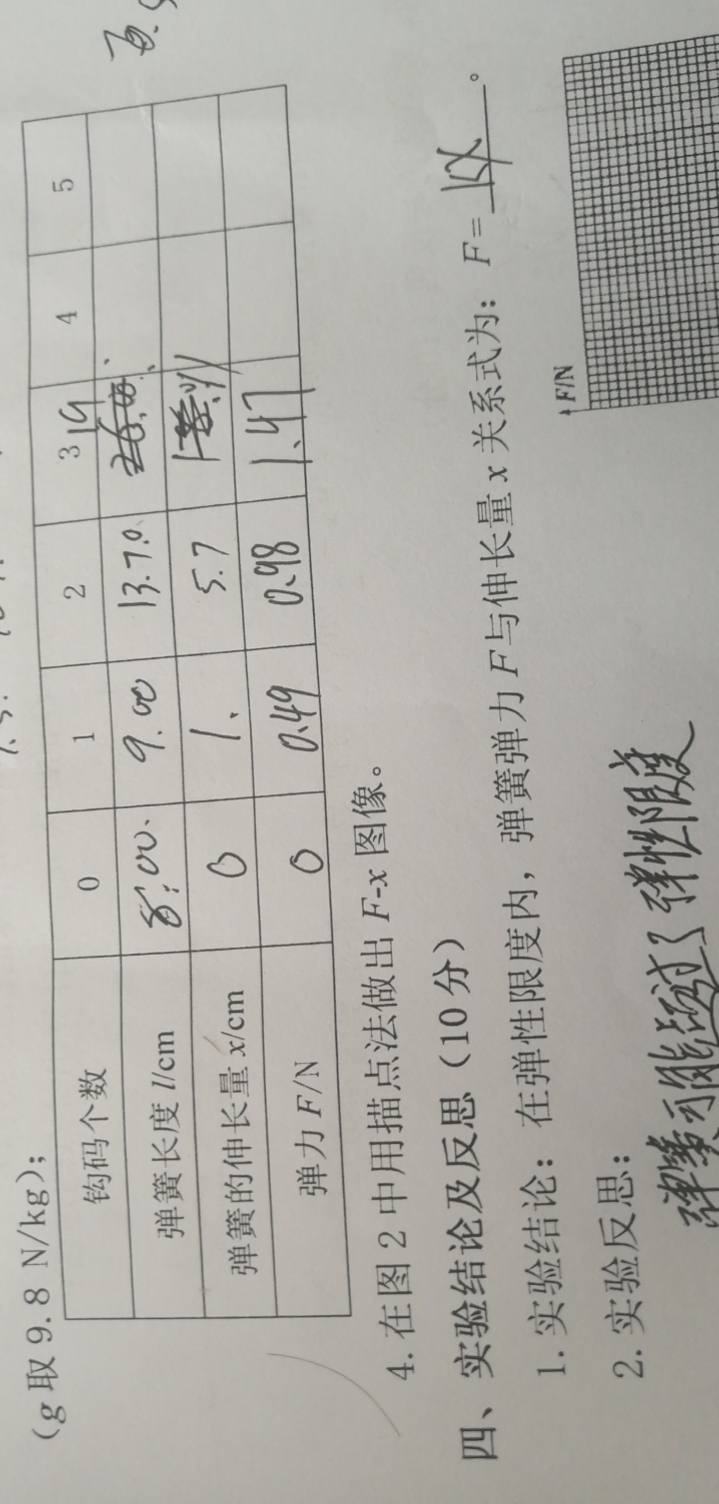 (g 取 9.8 N/kg)；
钩码个数 0 1 2 3 4 5
弹簧长度 l/cm 8.00. 9.00 13.70. 19
弹簧的伸长量 x/cm 0 1. 5.7
弹力 F/N 0 0.49 0.98 1.47
4. 在图 2 中用描点法做出 F-x 图像。
四、实验结论及反思（10 分）
1. 实验结论：在弹性限度内，弹簧弹力 F 与伸长量 x 关系式为：F= kx 。
2. 实验反思：
弹簧可能超过了弹性限度
F/N